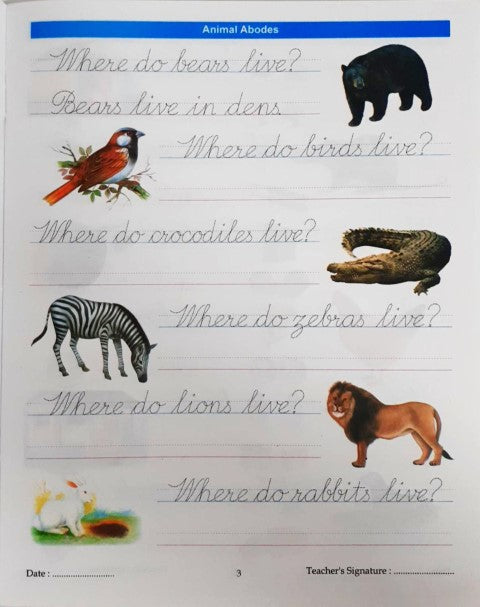 Animal Abodes
Where do bears live?
Bears live in dens
Where do birds live?
Where do crocodiles live?
Where do zebras live?
Where do lions live?
Where do rabbits live?
Date : ............................ 3 Teacher's Signature : ............................